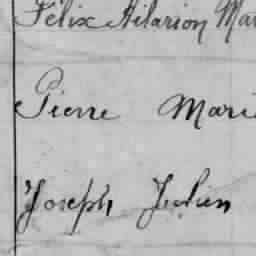 Félix Hilarion Mar
Pierre Mari
Joseph Julien